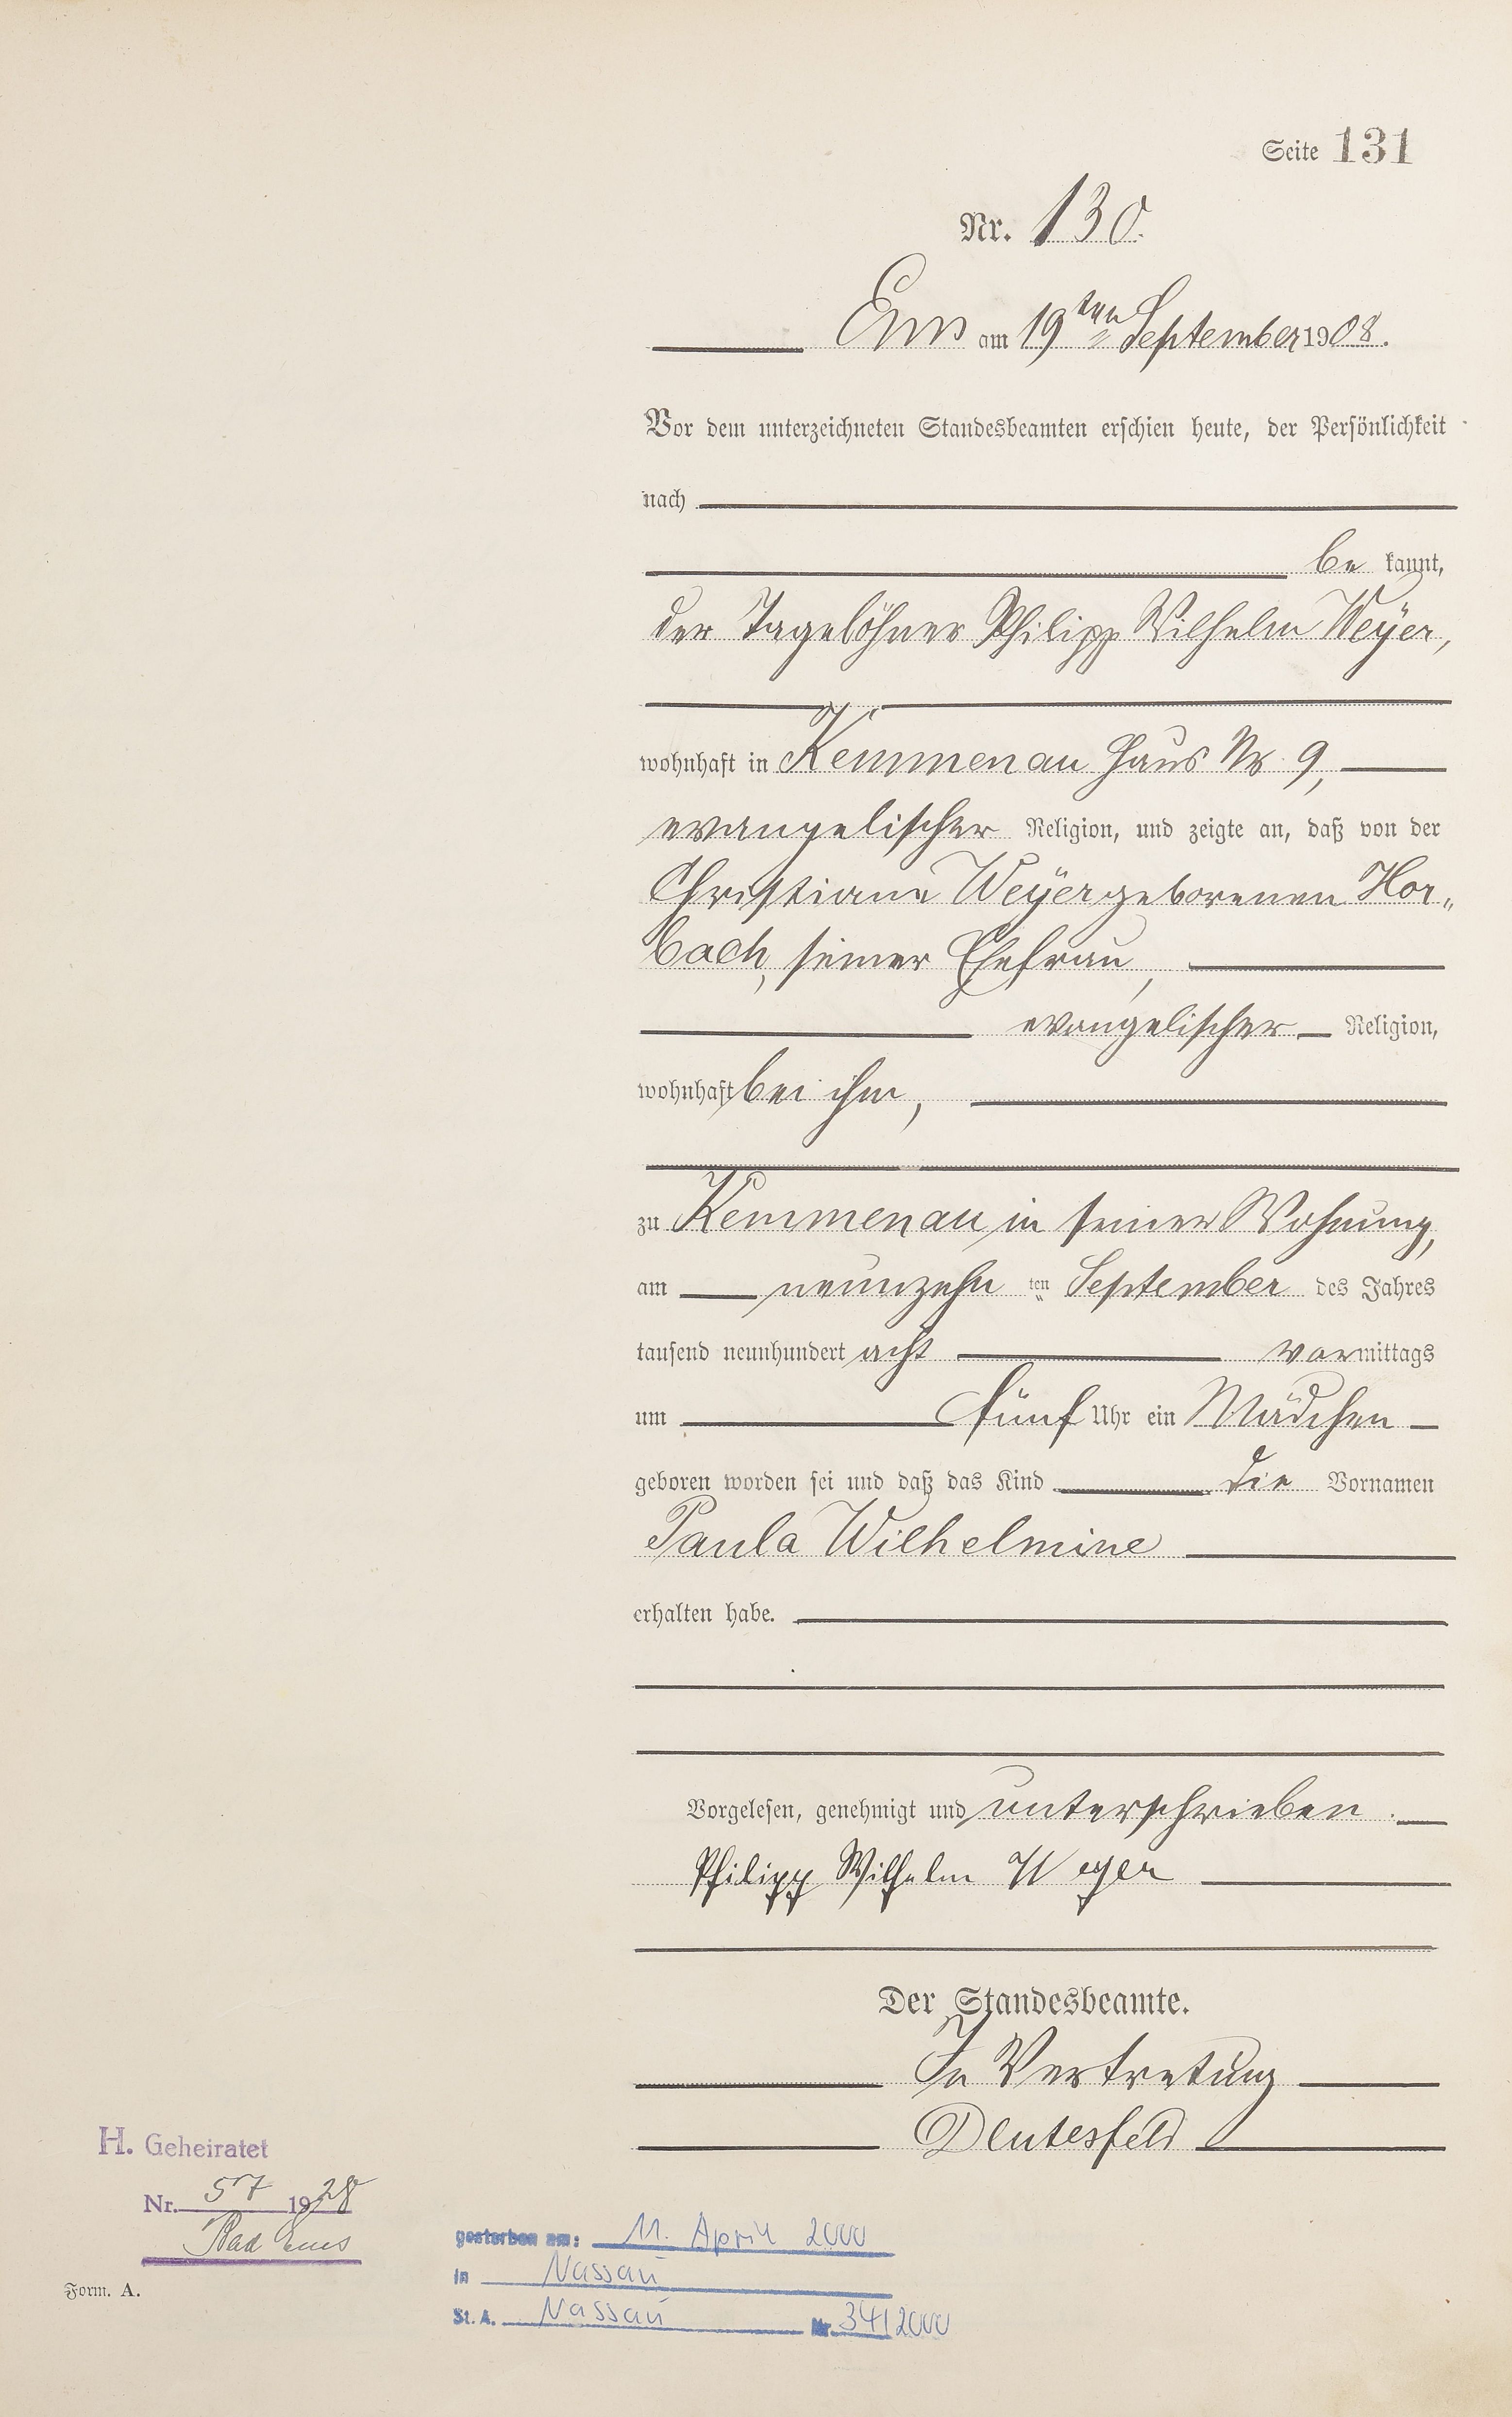 Seite 131
Nr. 130.
Ems am 19ten September 1908.
Vor dem unterzeichneten Standesbeamten erschien heute, der Persönlichkeit
nach
be kannt,
der Tagelöhner Philipp Wilhelm Weÿer,
wohnhaft in Kemmenau Haus Nr 9,
evangelischer Religion, und zeigte an, daß von der
Christiane Weÿer geborenen Hor„
bach, seiner Ehefrau,
evangelischer Religion,
wohnhaft bei ihm,
zu Kemmenau in seiner Wohnung,
am neunzehn ten September des Jahres
tausend neunhundert acht vormittags
um fünf Uhr ein Mädchen
geboren worden sei und daß das Kind die Vornamen
Paula Wilhelmine
erhalten habe.
Vorgelesen, genehmigt und unterschrieben.
Philipp Wilhelm Weyer
Der Standesbeamte.
In Vertretung
Deutesfeld
H. Geheiratet
Nr. 57 1928
Bad Ems
gestorben am: 11. April 2000
in Nassau
St. A. Nassau Nr. 34/2000
Form. A.